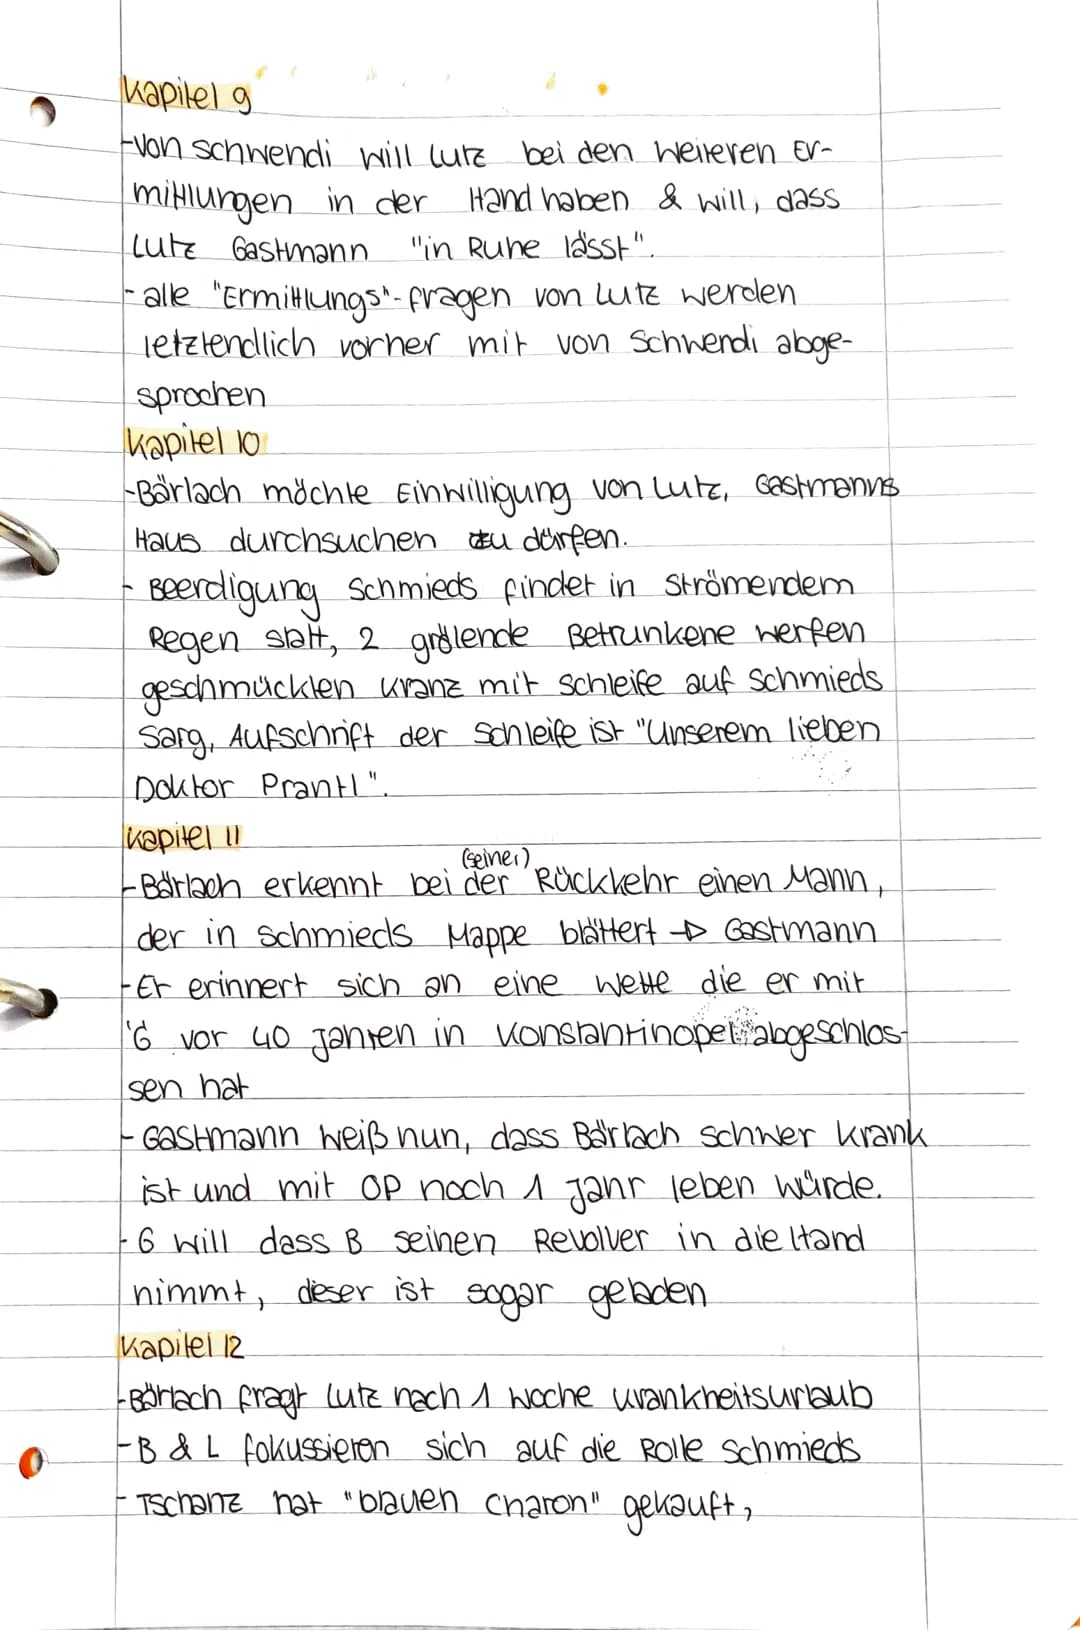 Kapitel 9
-Von Schwendi will Lutz bei den weiteren Er-
mittlungen in der Hand haben & will, dass
Lutz Gastmann "in Ruhe lässt".
- alle "Ermittlungs"-fragen von Lutz werden
letztendlich vorher mit von Schwendi abge-
sprochen
Kapitel 10
-Bärlach möchte Einwilligung von Lutz, Gastmanns
Haus durchsuchen zu dürfen.
- Beerdigung Schmieds findet in Strömendem
Regen statt, 2 grölende Betrunkene werfen
geschmückten Kranz mit Schleife auf Schmieds
Sarg, Aufschrift der Schleife ist "Unserem lieben
Doktor Prantl".
Kapitel 11
(seiner)
-Bärlach erkennt bei der Rückkehr einen Mann,
der in Schmieds Mappe blättert → Gastmann
-Er erinnert sich an eine Wette die er mit
'G vor 40 Jahren in Konstantinopel abgeschlos-
sen hat
- Gastmann weiß nun, dass Bärlach schwer krank
ist und mit OP noch 1 Jahr leben würde.
- G will dass B seinen Revolver in die Hand
nimmt, dieser ist sogar geladen
Kapitel 12
-Bärlach fragt Lutz nach 1 Woche Krankheitsurlaub
-B & L fokussieren sich auf die Rolle Schmieds
- Tschanz hat "blauen Charon" gekauft,